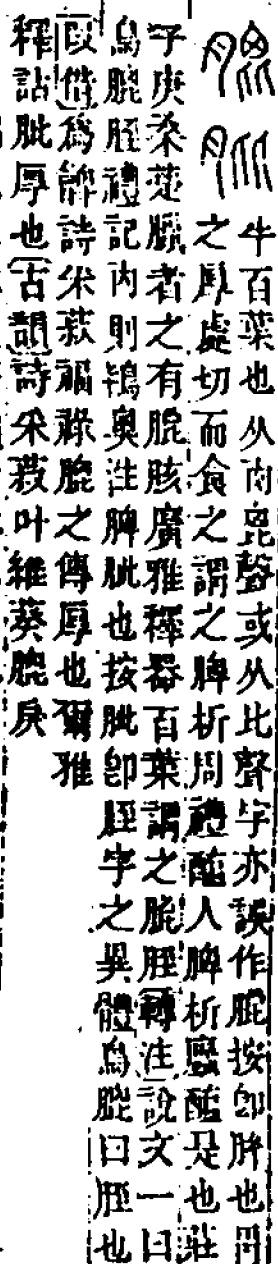 膍 肶
牛百葉也从肉毘聲或从比聲字亦誤作按卽脾也胃
之厚處切而食之謂之脾析周禮醢人脾析蠯醢是也莊
子庚桑楚臘者之有膍胲廣雅釋器百葉謂之膍胵轉注說文一曰
鳥膍胵禮記內則鴇奧注脾肶也按肶卽胵字之異體鳥膍曰胵也
叚借爲詩采菽福祿膍之傳厚也爾雅
釋詁肶厚也古韻詩采菽叶維葵膍戾